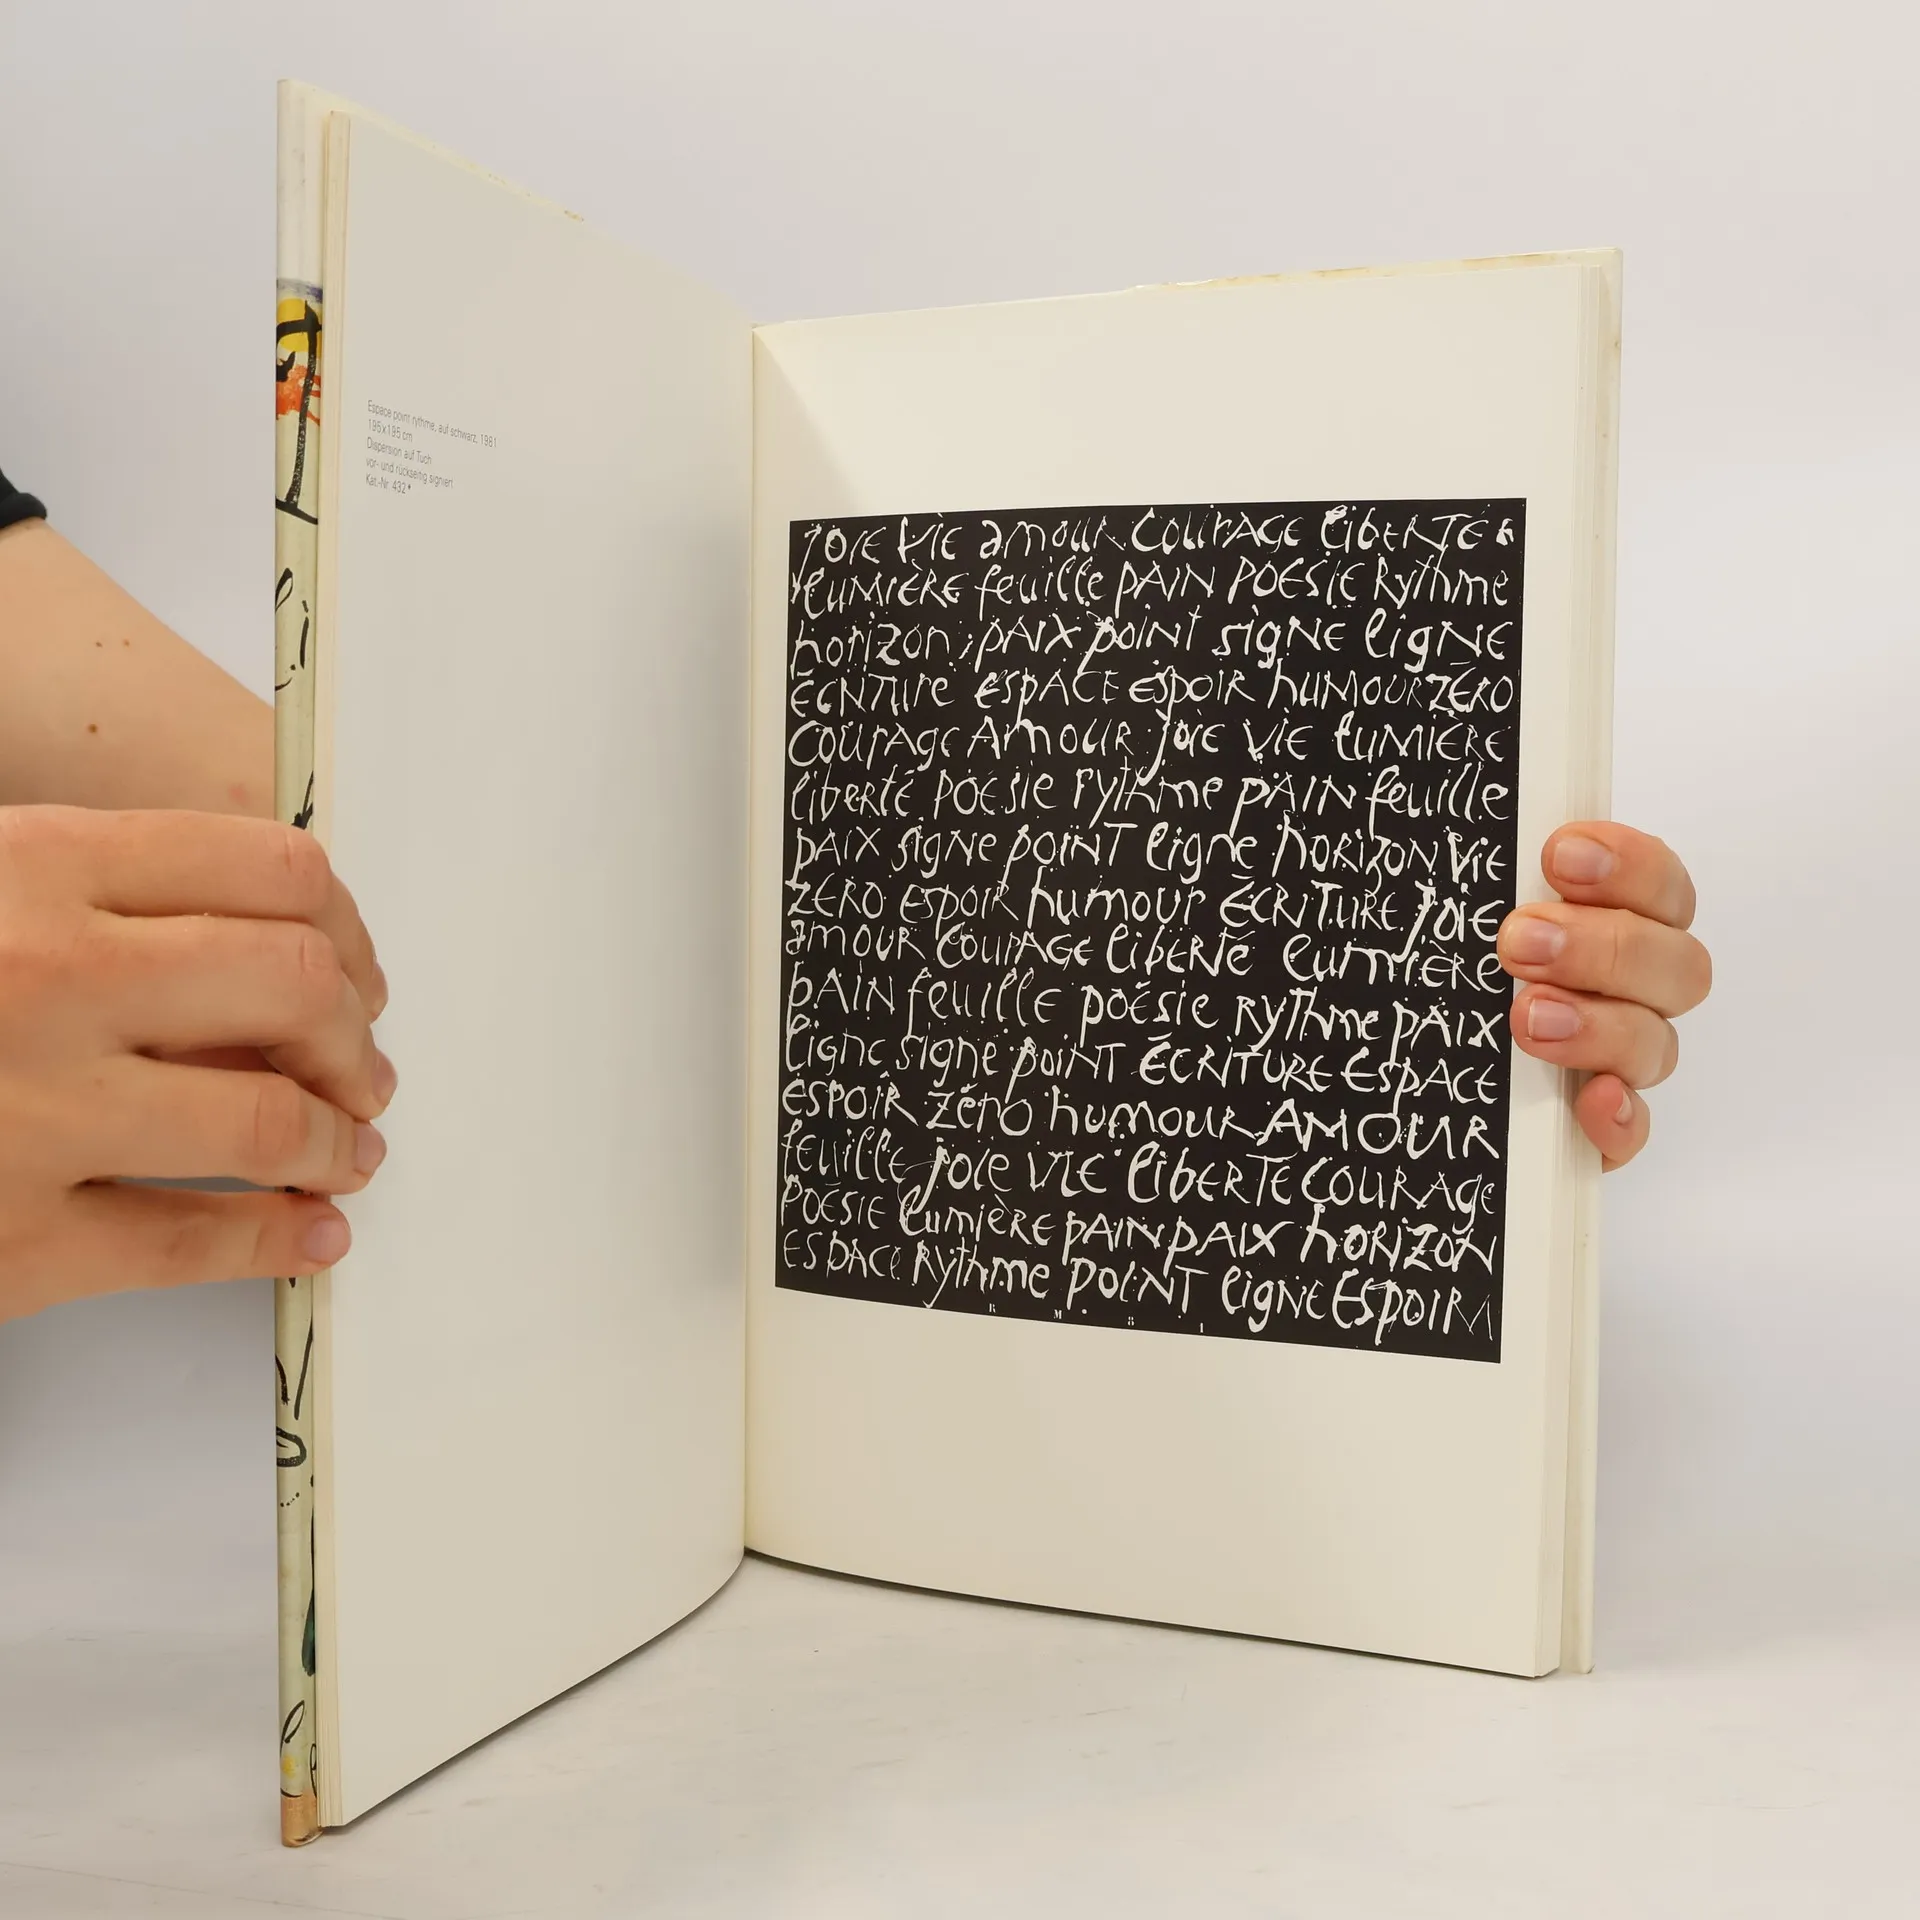 Espace point rythme, auf schwarz, 1981
195x195 cm
Dispersion auf Tuch
vor- und rückseitig signiert
Kat.-Nr. 432*
JOIE VIE amour COURAGE LIBERTÉ
LUMIÈRE feuille PAIN POÉSIE Rythme
horizon PAIX point signe ligne
ÉCRITURE ESPACE espoir humour ZÉRO
COURAGE AMOUR joie VIE LUMIÈRE
liberté POÉSIE rythme PAIN feuille
PAIX signe point ligne horizon Vie
ZÉRO ESPOIR humour ÉCRITURE JOIE
amour COURAGE LIBERTÉ lumière
PAIN feuille poésie Rythme PAIX
ligne signe point ÉCRITURE ESPACE
ESPOIR zéro humour AMOUR
feuille joie VIE LIBERTÉ COURAGE
POÉSIE lumière PAIN PAIX horizon
ESPACE Rythme point ligne ESPOIR
R M 8 1